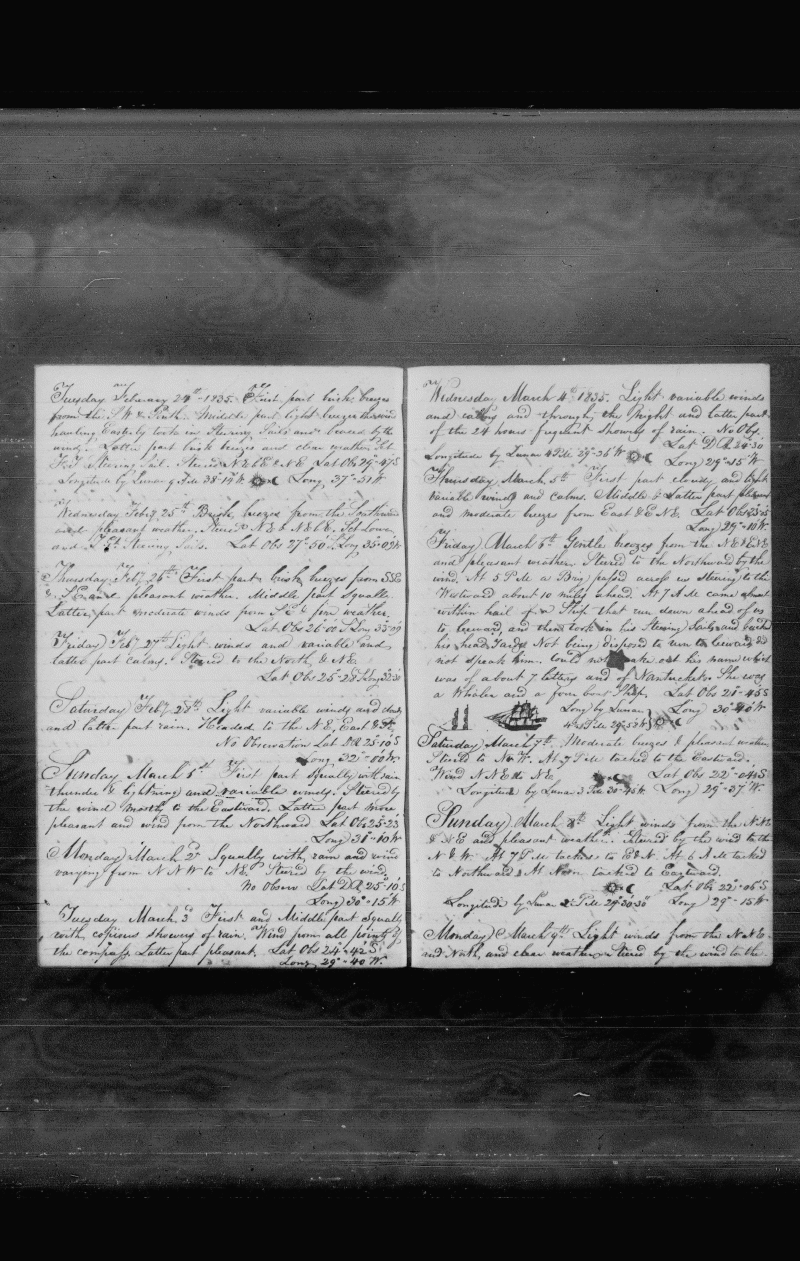 Tuesday February 24th 1835. First part brisk breezes
from the S.W. & South. Middle part light breezes the wind
hauling Easterly took in Steering Sails and braced by the
wind. Latter part brisk breezes and clear weather Set
Steering Sail. Steered N.E.bE. & N.E. Lat Obs 29°-47S
Longitude by Lunar 38°19W Long 37°-51W
Wednesday Feby 25th Brisk breezes from the Southward
and pleasant weather. Steered N.E. & N.E.b.E. Set Lower
and Steering Sails. Lat Obs 27°-50 S Long 35-09W
Thursday Feby 26th First part brisk breezes from SSE
& S.E. and pleasant weather. Middle part Squally
Latter part moderate winds from S.E. & fine weather.
Lat Obs 26°00 S Long 33°09
Friday Feby 27th Light winds and variable and
latter part calms. Steered to the North & N.E.
Lat Obs 25-28 S Long 32°30
Saturday Feby 28th Light variable winds and cloudy
and latter part rain. Headed to the N.E, East & SE.
No Observation Lat DR 25°10S
Long 32°-00W
Sunday March 1st First part Squally with rain
thunder & lightning and variable winds. Steered by
the wind mostly to the Eastward. Latter part more
pleasant and wind from the Northward Lat Obs 25-23
Long 31°-10W
Monday March 2d Squally with rain and wind
varying from N N W to N.E. Steered by the wind,
No Observ Lat D.R. 25°-10S
Long 30°-15W
Tuesday March 3d First and Middle part Squally
with copious showers of rain. Wind from all points of
the compass. Latter part pleasant. Lat Obs 24°-42S
Long 29°-40W.
Wednesday March 4th 1835. Light variable winds
and calms and through the Night and latter part
of the 24 hours frequent showers of rain. No Obs.
Lat D.R. 24°30
Longitude by Lunar 29°-26W Long 29°-15W
Thursday March 5th First part cloudy and light
variable winds and calms. Middle & Latter part pleasant
and moderate breeze from East & E N E. Lat Obs 23-25
Long 29°-10W.
Friday March 6th Gentle breezes from the N.E. & E.N.E
and pleasant weather. Steered to the Northward by the
wind. At 5 P.M. a Brig passed across us Steering to the
Westward about 10 miles ahead. At 7 A M came almost
within hail of a Ship that run down ahead of us
to leeward and then took in his Steering Sails and backed
his head Yards. Not being disposed to run to leeward did
not speak him. Could not make out his name which
was of about 7 letters and of Nantucket. She was
a Whaler and a four boat Ship. Lat Obs 21°-45S
Long by Lunar Long 30°-40W
29°-52W
Saturday March 7th. Moderate breezes & pleasant weather,
Steered to N.W. At 7 P.M tacked to the Eastward.
Wind N N E to N E. Lat Obs 22°-04S
Longitude by Lunar 30°-45W Long 29°-37W.
Sunday March 8th Light winds from the N.N.E.
& N E and pleasant weather. Steered by the wind to the
N & W. At 7 P.M tacked to E & N. At 6 A M tacked
to Northward & At Noon tacked to Eastward.
Lat Obs 22°-06S
Longitude by Lunar 29°30'30" Long 29°-15W
Monday March 9th Light winds from the N.N.E.
and North, and clear weather Steered by the wind to the